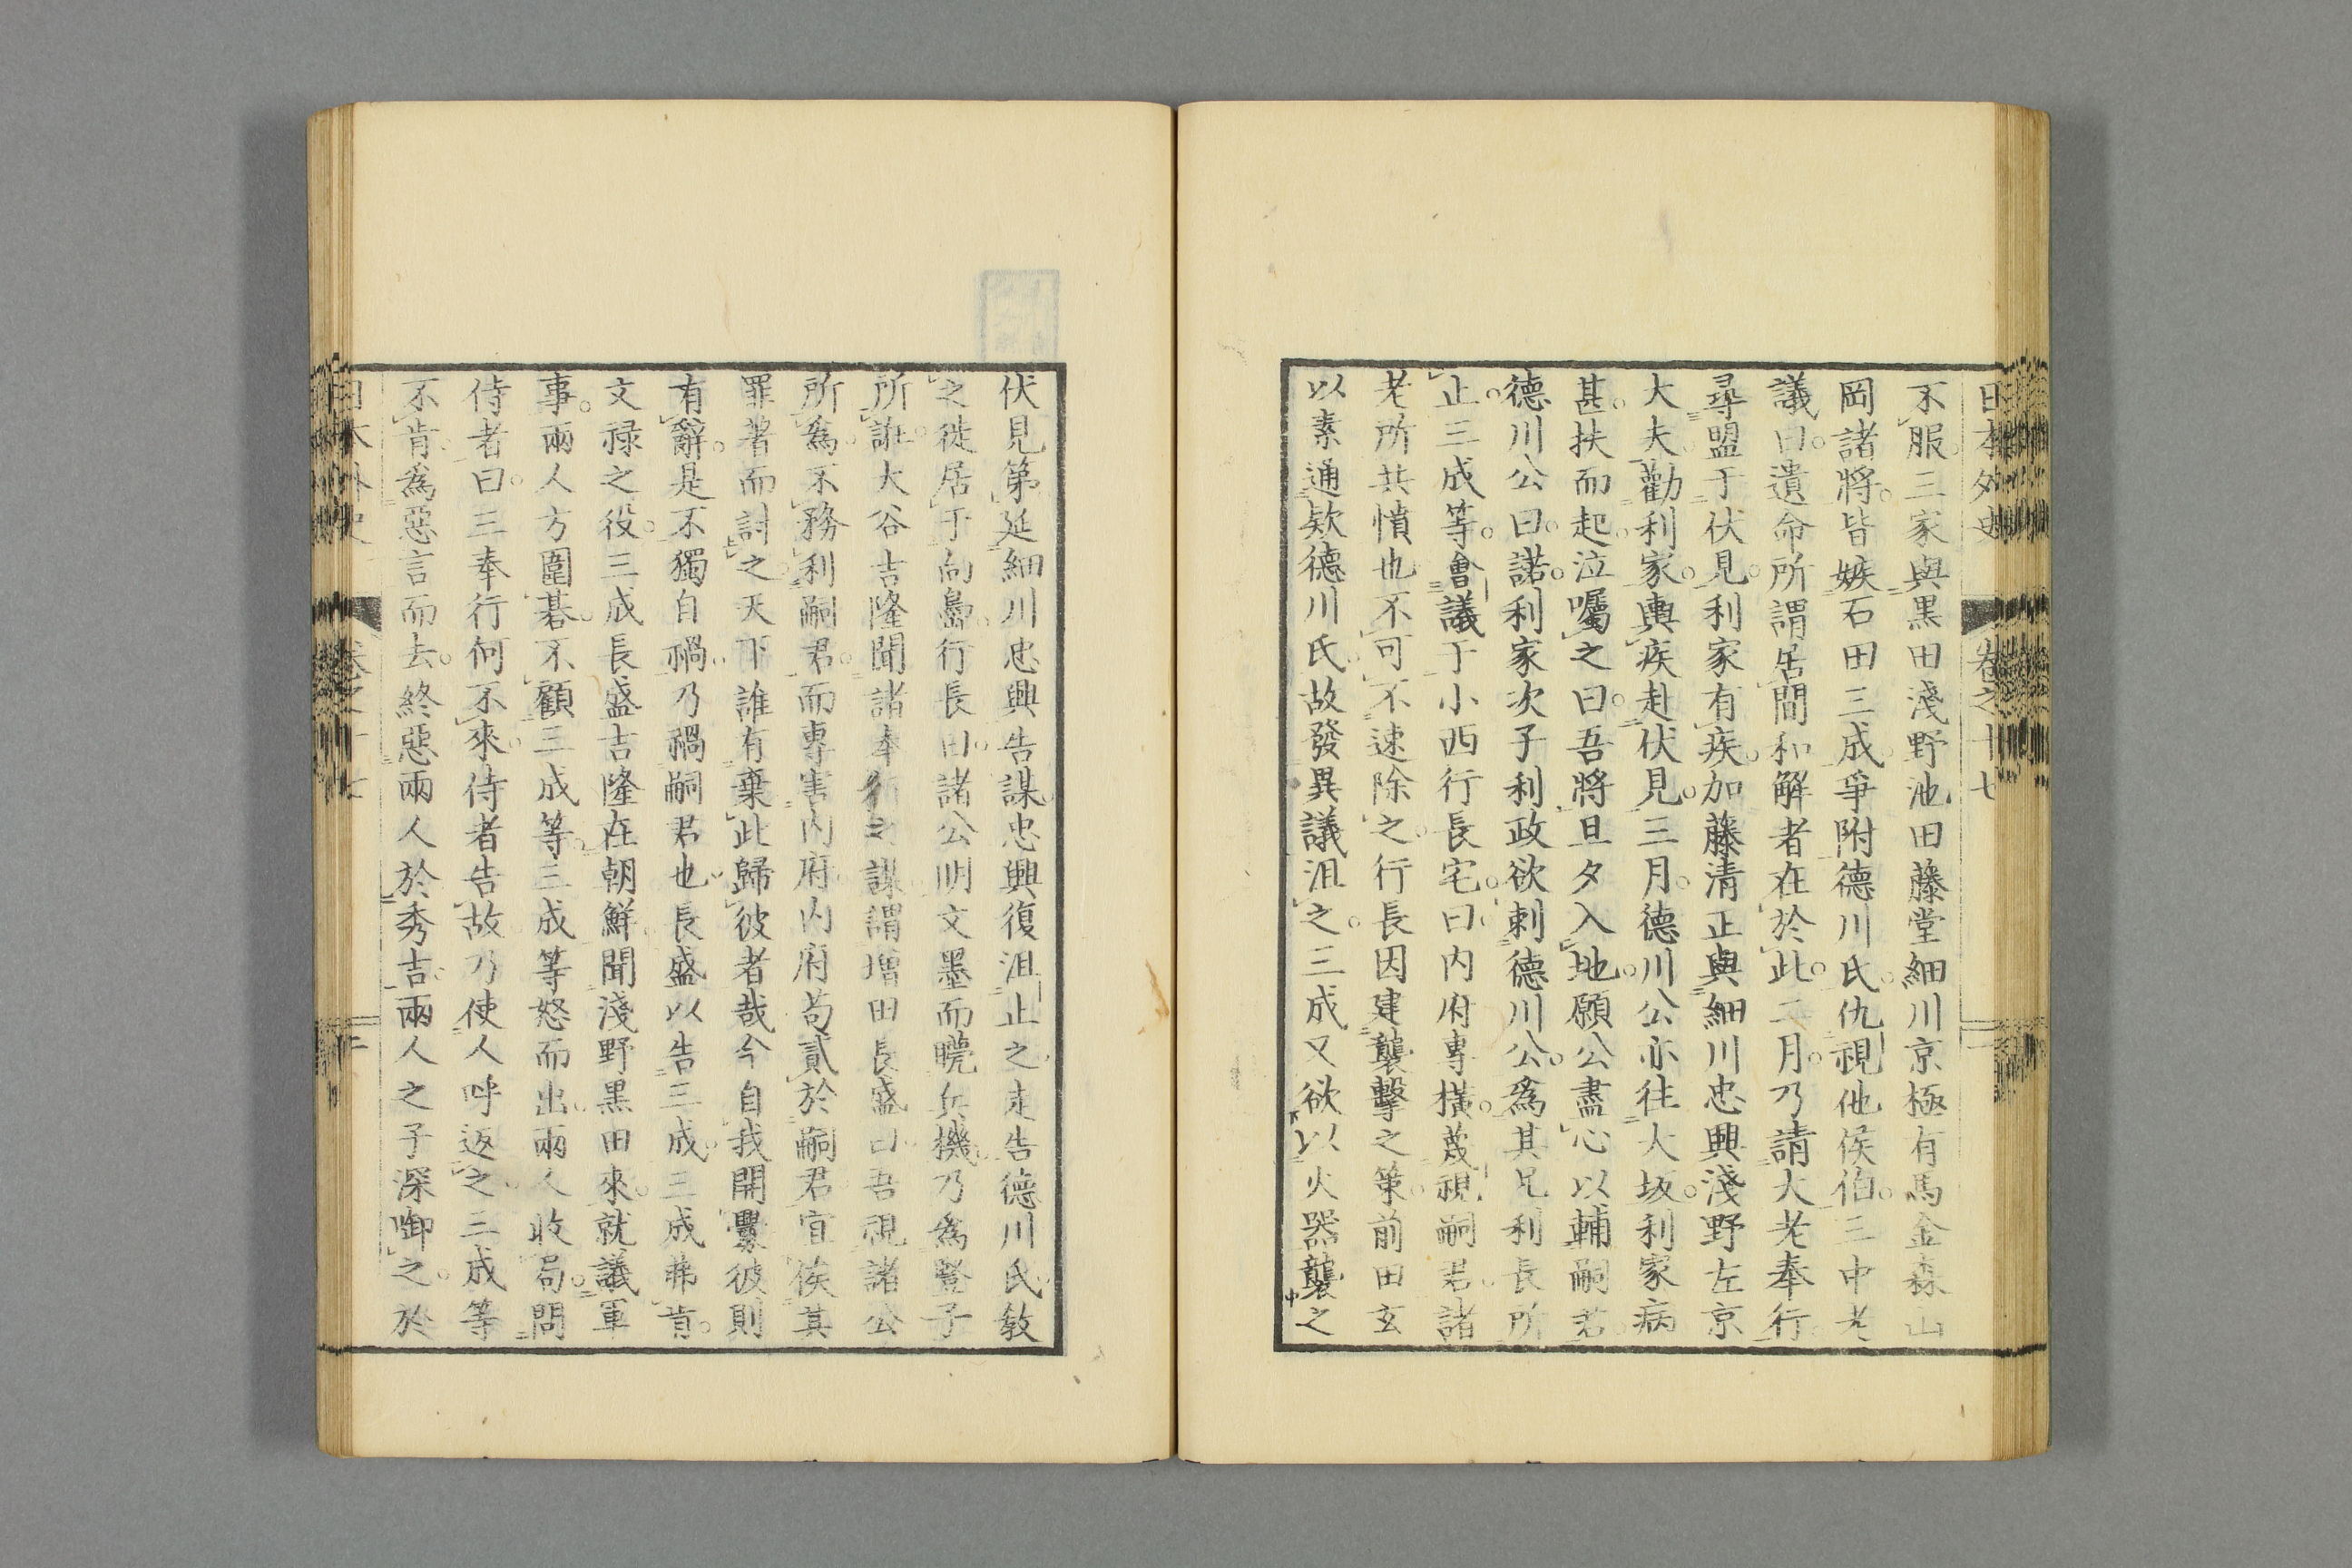 日本外史 卷之十七
不服三家與黒田淺野池田藤堂細川京極有馬金森山
岡諸將皆嫉石田三成爭附德川氏仇視他侯伯三中老
議曰遺命所謂居間和解者在於此二月乃請大老奉行
尋盟于伏見利家有疾加藤清正與細川忠興淺野左京
大夫勸利家輿疾赴伏見三月德川公亦往大坂利家病
甚扶而起泣囑之曰吾將旦夕入地願公盡心以輔嗣君
德川公曰諾利家次子利政欲刺德川公爲其兄利長所
止三成等會議于小西行長宅曰内府專横蔑視嗣君諸
老所共憤也不可不速除之行長因建襲擊之策前田玄
以素通款德川氏故發異議沮之三成又欲以火器襲之
伏見第延細川忠興告謀忠興復沮止之走告德川氏敎
之徙居于向島行長曰諸公明文墨而曉兵機乃爲豎子
所誑大谷吉隆聞諸奉行之謀謂增田長盛曰吾視諸公
所爲不務利嗣君而專害内府内府苟貳於嗣君宜俟其
罪著而討之天下誰有棄此歸彼者哉今自我開釁彼則
有辭是不獨自禍乃禍嗣君也長盛以告三成三成弗肯
文禄之役三成長盛吉隆在朝鮮聞淺野黒田來就議軍
事兩人方圍碁不顧三成等三成等怒而出兩人收局問
侍者曰三奉行何不來侍者告故乃使人呼返之三成等
不肯爲惡言而去終惡兩人於秀吉兩人之子深啣之於
日本外史 卷之十七